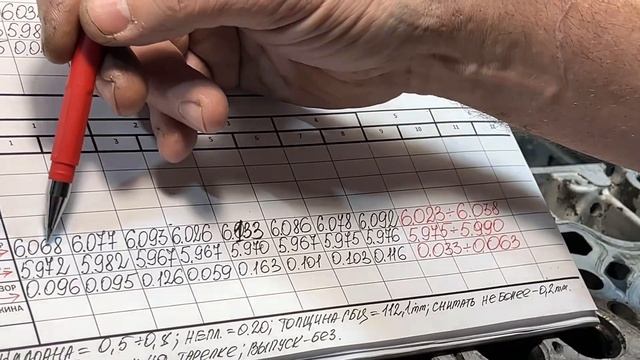 6.03
5.98
0.0
1 2 3 4 5
1 3 4 5 6 7 8 9 10 11 12
6.068 6.077 6.093 6.026 6.133 6.086 6.078 6.092 6.023÷6.038
5.972 5.982 5.967 5.967 5.970 5.967 5.975 5.976 5.975÷5.990
ЗОР 0.096 0.095 0.126 0.059 0.163 0.101 0.103 0.116 0.033÷0.063
ЖИНА
= 0,5÷0,8; НЕПЛ. = 0.20; ТОЛЩИНА ГБЦ = 112,1mm; СНИТАТЬ НЕ БОЛЕЕ - 0,2mm.
ТАРЕЛКЕ; ВЫПУСК-БЕЗ.